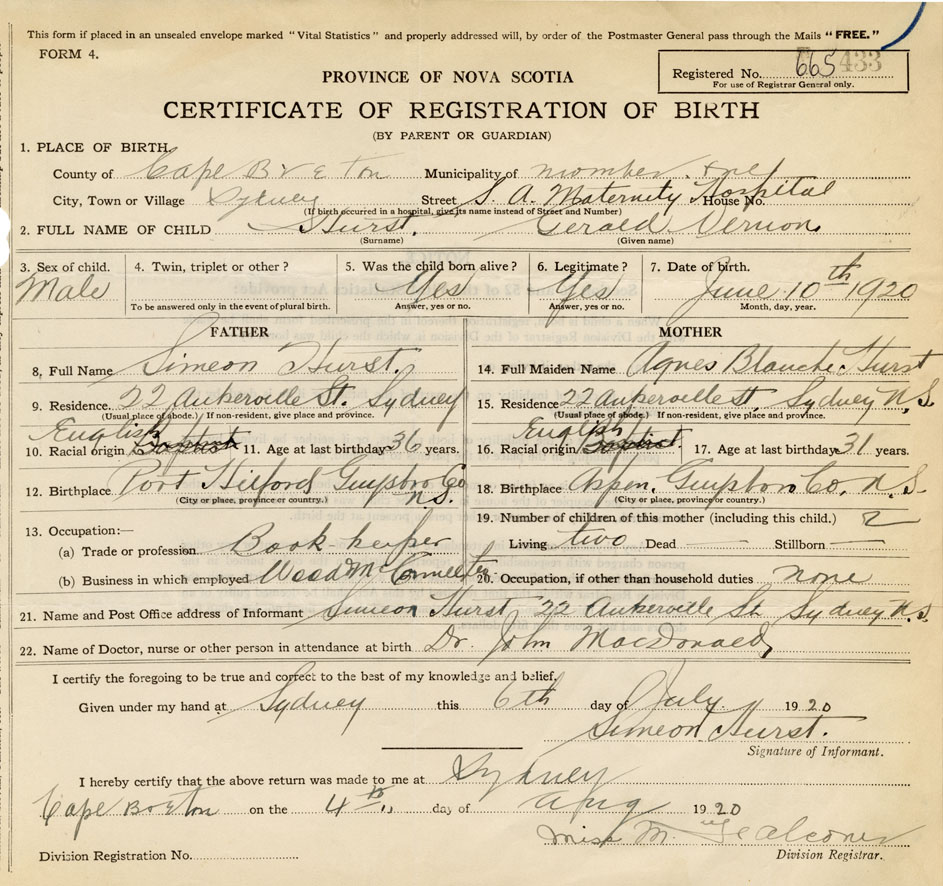 This form if placed in an unsealed envelope marked "Vital Statistics" and properly addressed will, by order of the Postmaster General pass through the Mails "FREE."
FORM 4.
Registered No. 665 433
For use of Registrar General only.
PROVINCE OF NOVA SCOTIA
CERTIFICATE OF REGISTRATION OF BIRTH
(BY PARENT OR GUARDIAN)
1. PLACE OF BIRTH,
County of Cape Breton Municipality of
City, Town or Village Sydney Street S. A. Maternity Hospital House No.
(If birth occurred in a hospital, give its name instead of Street and Number)
2. FULL NAME OF CHILD Hurst. Gerald Vernon
(Surname) (Given name)
3. Sex of child. 4. Twin, triplet or other? 5. Was the child born alive? 6. Legitimate? 7. Date of birth.
Male Yes Yes June 10th 1920
To be answered only in the event of plural birth. Answer, yes or no. Answer, yes or no. Month, day, year.
FATHER MOTHER
8. Full Name Simeon Hurst. 14. Full Maiden Name Agnes Blanche Hurst
9. Residence 22 Ankerville St. Sydney 15. Residence 22 Ankerville st, Sydney N.S.
(Usual place of abode.) If non-resident, give place and province. (Usual place of abode.) If non-resident, give place and province.
English English
10. Racial origin Baptist 11. Age at last birthday 36 years. 16. Racial origin Baptist 17. Age at last birthday 31 years.
12. Birthplace Port Hilford Guysboro Co N.S. 18. Birthplace Aspen, Guysboro Co. N.S.
(City or place, province or country.) (City or place, province or country.)
13. Occupation:— 19. Number of children of this mother (including this child.) 2
(a) Trade or profession Book keeper Living two Dead — Stillborn —
(b) Business in which employed 20. Occupation, if other than household duties none
21. Name and Post Office address of Informant Simeon Hurst 22 Ankerville St Sydney N.S.
22. Name of Doctor, nurse or other person in attendance at birth Dr. John MacDonald,
I certify the foregoing to be true and correct to the best of my knowledge and belief,
Given under my hand at Sydney this 6th day of July. 1920
Simeon Hurst.
Signature of Informant.
I hereby certify that the above return was made to me at Sydney
Cape Breton on the 4th day of Aug 1920
Miss M. Falconer
Division Registration No. Division Registrar.